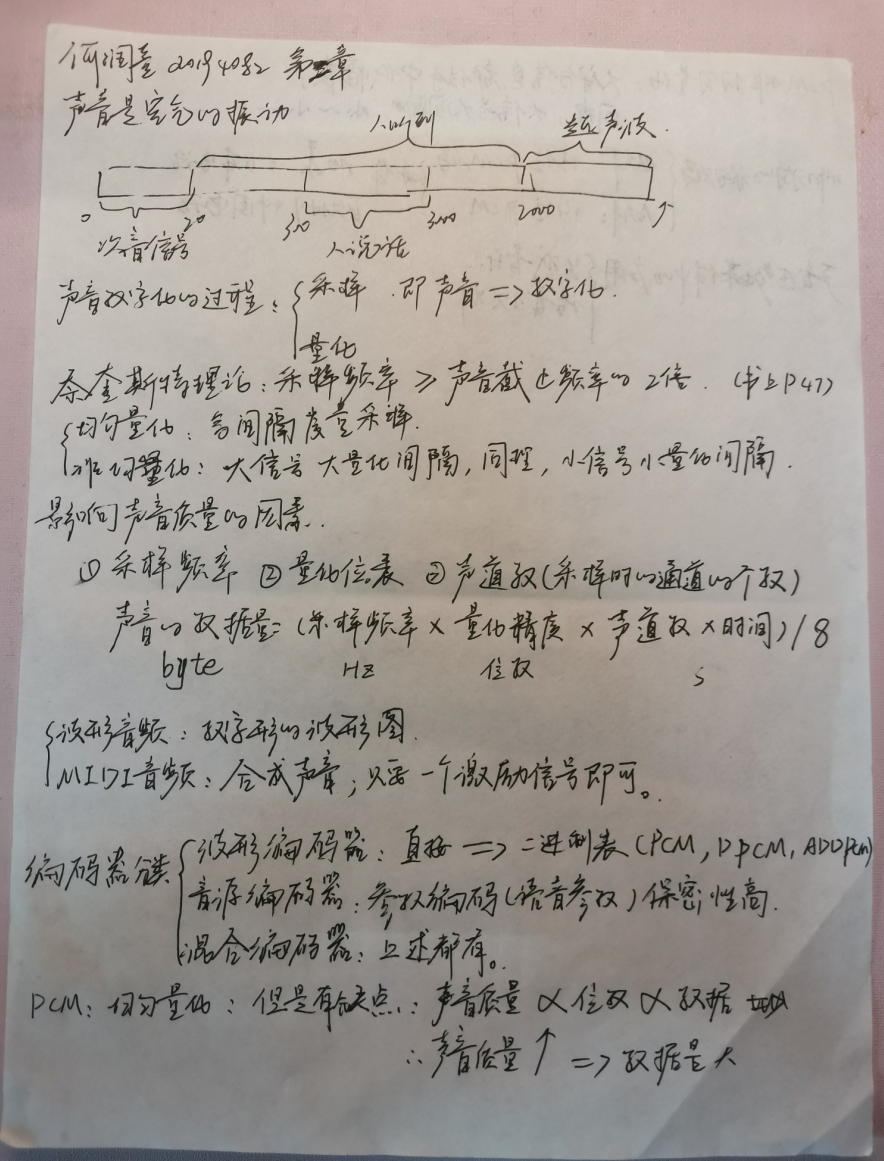 何润 20194082 第二章
声音是空气的振动
人听到 超声波
0 20 300 3000 2000
次音信号 人说话
声音数字化的过程: 采样 即声音 => 数字化.
量化
奈奎斯特理论: 采样频率 ≥ 声音截止频率的 2倍. (书上P47)
均匀量化: 等间隔度量采样.
非均匀量化: 大信号大量化间隔, 同理, 小信号小量化间隔.
影响声音质量的因素.
① 采样频率 ② 量化位 ③ 声道数(采样时的通道的个数)
声音的数据量=(采样频率 × 量化精度 × 声道数 × 时间)/8
byte HZ 位数 s
波形音频: 数字形的波形图.
MIDI音频: 合成声音; 只要一个激励信号即可。
编码器分类 波形编码器: 直接 => 二进制表(PCM, DPCM, ADDPCM)
音源编码器: 参数编码(语音参数) 保密性高.
混合编码器: 上述都有。
PCM: 均匀量化: 但是有缺点: 声音质量 ∝ 位数 ∝ 数据
∴ 声音质量↑ => 数据量大